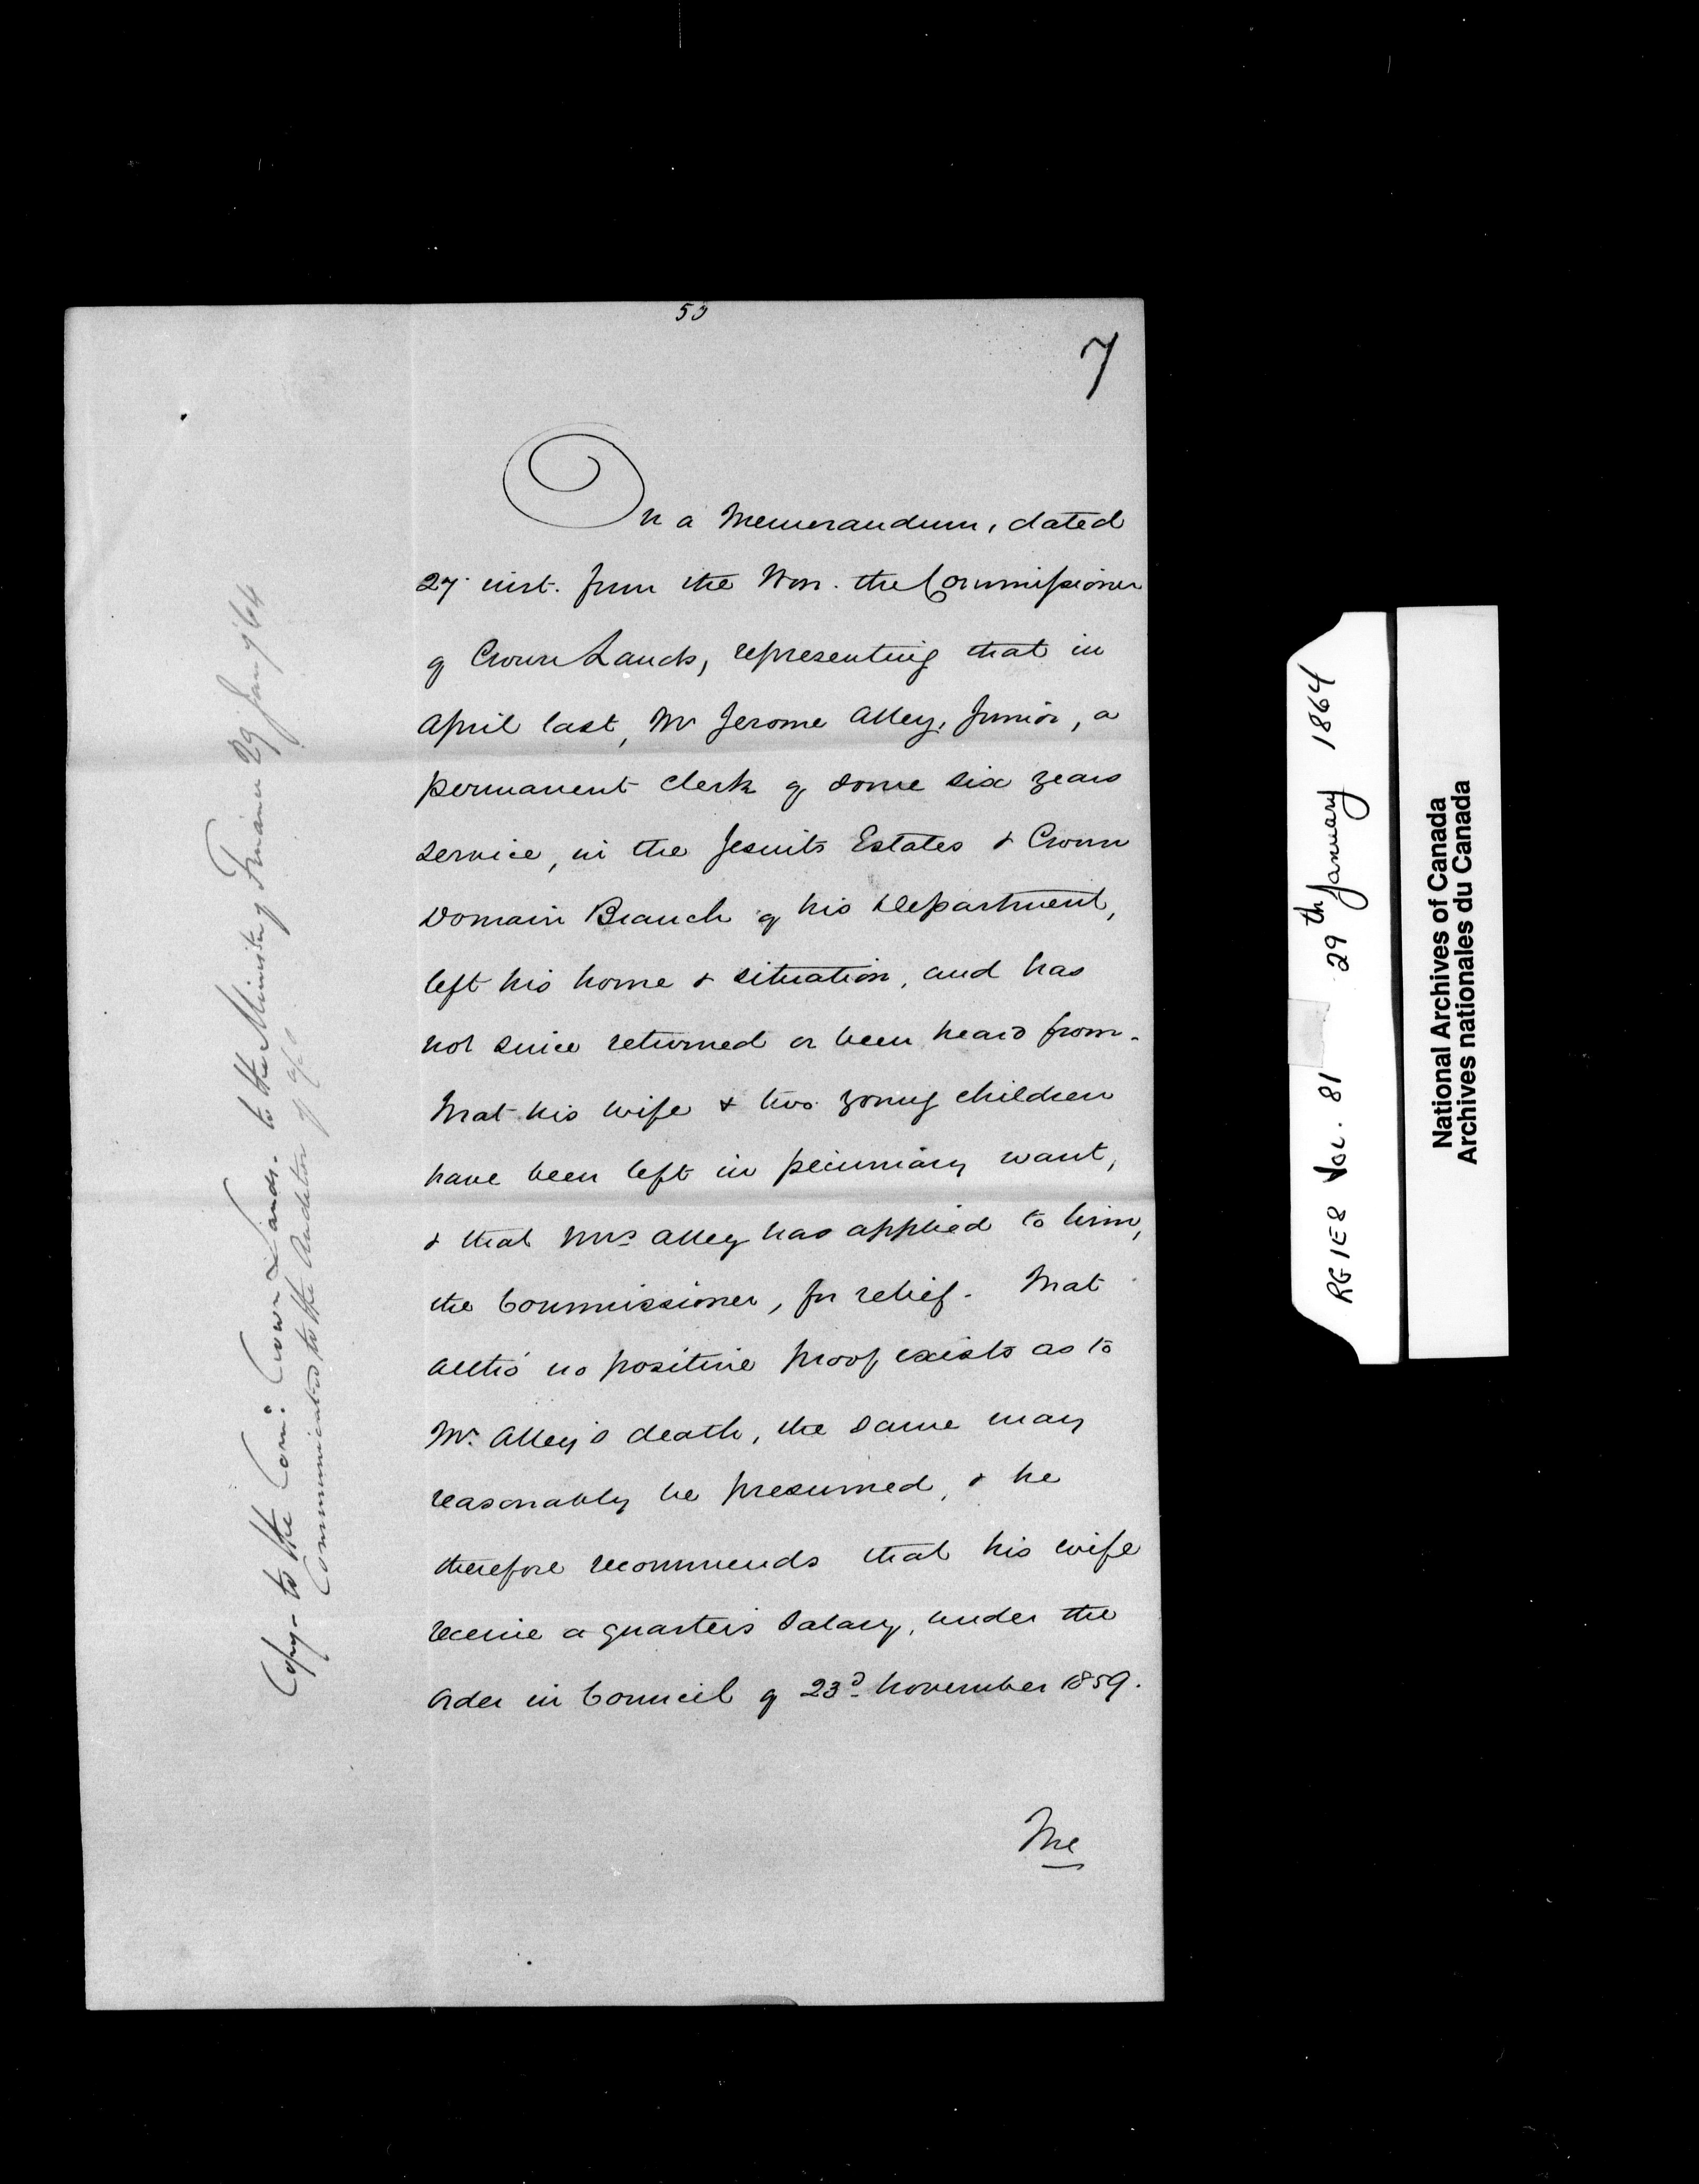 53
7
On a Memorandum, dated
27 inst. from the Hon. the Commissioner
of Crown Lands, representing that in
April last, Mr Jerome Alley, Junior, a
permanent Clerk of some six years
service, in the Jesuits Estates & Crown
Domain Branch of his Department,
left his home & situation, and has
not since returned or been heard from.
That his wife & two young children
have been left in pecuniary want,
& that Mrs Alley has applied to him,
the Commissioner, for relief. That
altho' no positive proof exists as to
Mr. Alley's death, the same may
reasonably be presumed, & he
therefore recommends that his wife
receive a quarter's salary, under the
Order in Council of 23d November 1859.
The
Copy to the Com: Crown Lands. to the Minister of Finance 29 Jany '64
Communicated to the Auditor
RG1E8 Vol. 81 29th January 1864
National Archives of Canada
Archives nationales du Canada